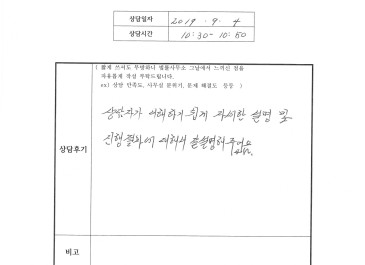 상담일자 2019. 9. 4
상담시간 10:30-10:50
( 짧게 쓰셔도 무방하니 법률사무소 그날에서 느끼신 점을
자유롭게 작성 부탁드립니다.
ex) 상담 만족도, 사무실 분위기, 문제 해결도 등등 )
상담자가 이해하기 쉽게 자세한 설명 및
진행결과에 대해서 잘 설명해 주어요
상담후기
비고